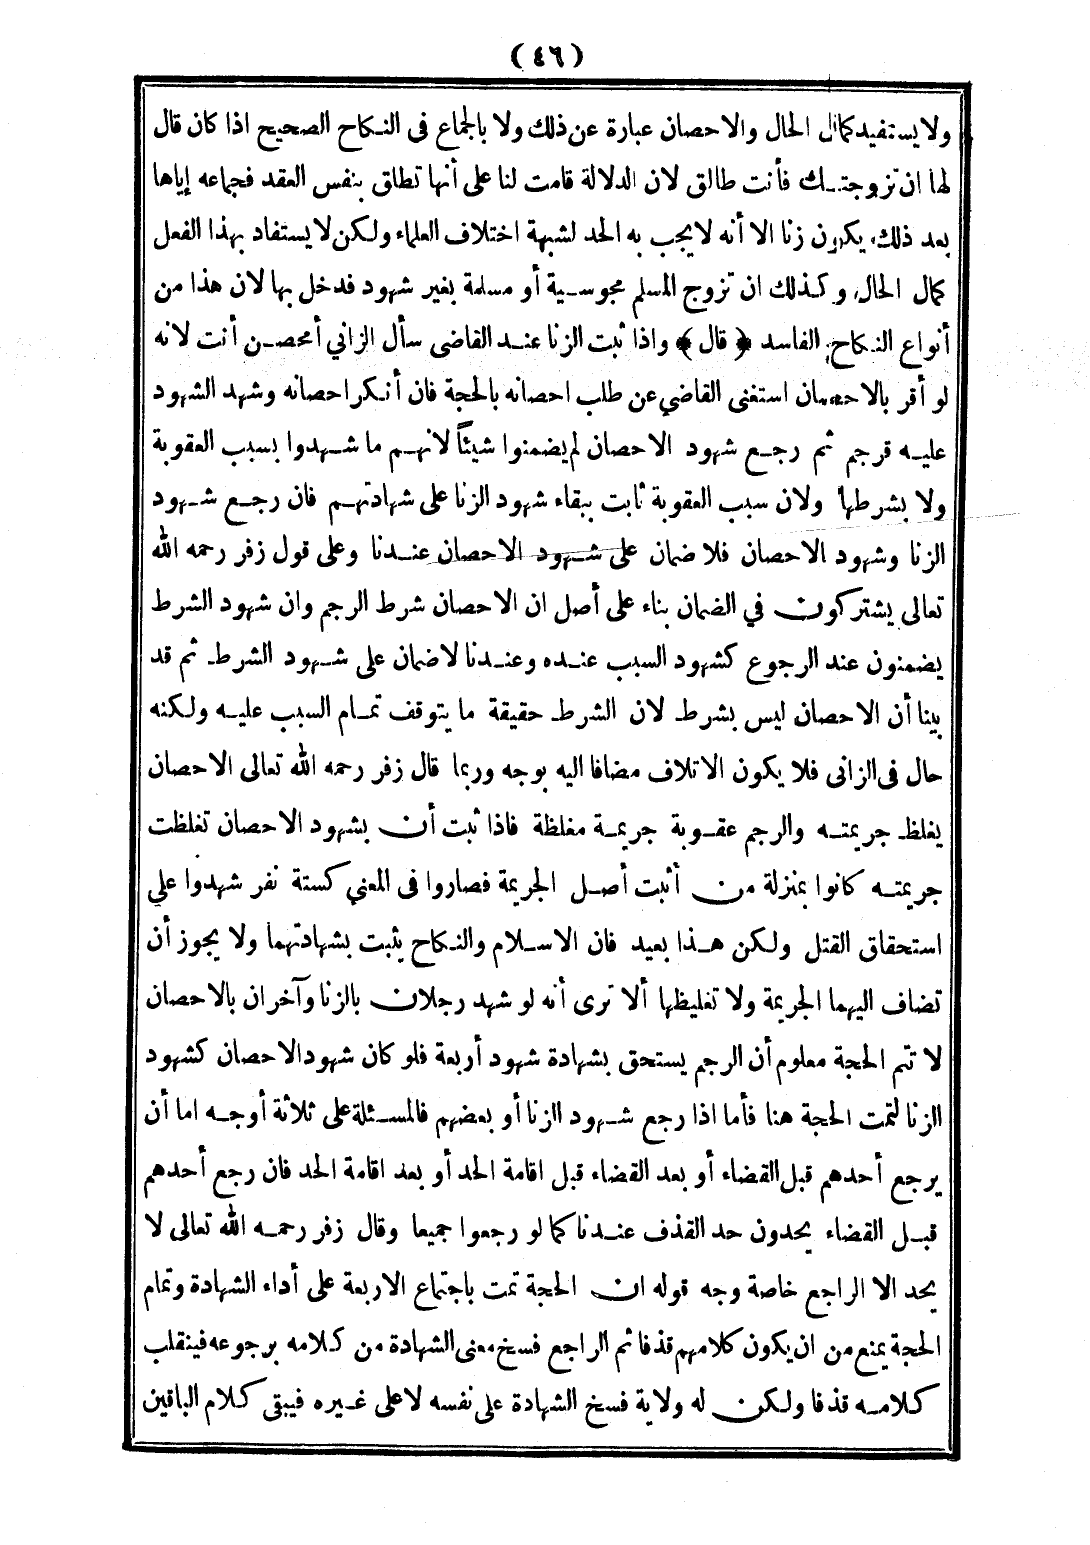 (٤٦)
ولا يستفيد كمال الحال والاحصان عبارة عن ذلك ولا بالجماع فى النكاح الصحيح اذا كان قال
لها ان تزوجتك فأنت طالق لان الدلالة قامت لنا على أنها تطلق بنفس العقد فجماعه إياها
بعد ذلك يكون زنا الا أنه لا يجب به الحد لشبهة اختلاف العلماء ولكن لا يستفاد بهذا الفعل
كمال الحال وكذلك ان تزوج المسلم مجوسية أو مسلمة بغير شهود فدخل بها لان هذا من
أنواع النكاح الفاسد ﴿ قال ﴾ واذا ثبت الزنا عند القاضى سأل الزاني أمحصن أنت لانه
لو أقر بالاحصان استغنى القاضي عن طلب احصانه بالحجة فان أنكر احصانه وشهد الشهود
عليه فرجم ثم رجع شهود الاحصان لم يضمنوا شيئاً لانهم ما شهدوا بسبب العقوبة
ولا بشرطها ولان سبب العقوبة ثابت ببقاء شهود الزنا على شهادتهم فان رجع شهود
الزنا وشهود الاحصان فلا ضمان على شهود الاحصان عندنا وعلى قول زفر رحمه الله
تعالى يشتركون في الضمان بناء على أصل ان الاحصان شرط الرجم وان شهود الشرط
يضمنون عند الرجوع كشهود السبب عنده وعندنا لاضمان على شهود الشرط ثم قد
بينا أن الاحصان ليس بشرط لان الشرط حقيقة ما يتوقف تمام السبب عليه ولكنه
حال فى الزانى فلا يكون الاتلاف مضافا اليه بوجه وربما قال زفر رحمه الله تعالى الاحصان
يغلظ جريمته والرجم عقوبة جريمة مغلظة فاذا ثبت أن بشهود الاحصان تغلظت
جريمته كانوا بمنزلة من أثبت أصل الجريمة فصاروا فى المعني كستة نفر شهدوا علي
استحقاق القتل ولكن هذا بعيد فان الاسلام والنكاح يثبت بشهادتهما ولا يجوز أن
تضاف اليهما الجريمة ولا تغليظها ألا ترى أنه لو شهد رجلان بالزنا وآخران بالاحصان
لا تتم الحجة معلوم أن الرجم يستحق بشهادة شهود أربعة فلو كان شهود الاحصان كشهود
الزنا لتمت الحجة هنا فأما اذا رجع شهود الزنا أو بعضهم فالمسئلة على ثلاثة أوجه اما أن
يرجع أحدهم قبل القضاء أو بعد القضاء قبل اقامة الحد أو بعد اقامة الحد فان رجع أحدهم
قبل القضاء يحدون حد القذف عندنا كما لو رجعوا جميعا وقال زفر رحمه الله تعالى لا
يحد الا الراجع خاصة وجه قوله ان الحجة تمت باجتماع الاربعة على أداء الشهادة وتمام
الحجة يمنع من ان يكون كلامهم قذفا ثم الراجع فسخ معنى الشهادة من كلامه برجوعه فينقلب
كلامه قذفا ولكن له ولاية فسخ الشهادة على نفسه لا على غيره فيبقى كلام الباقين